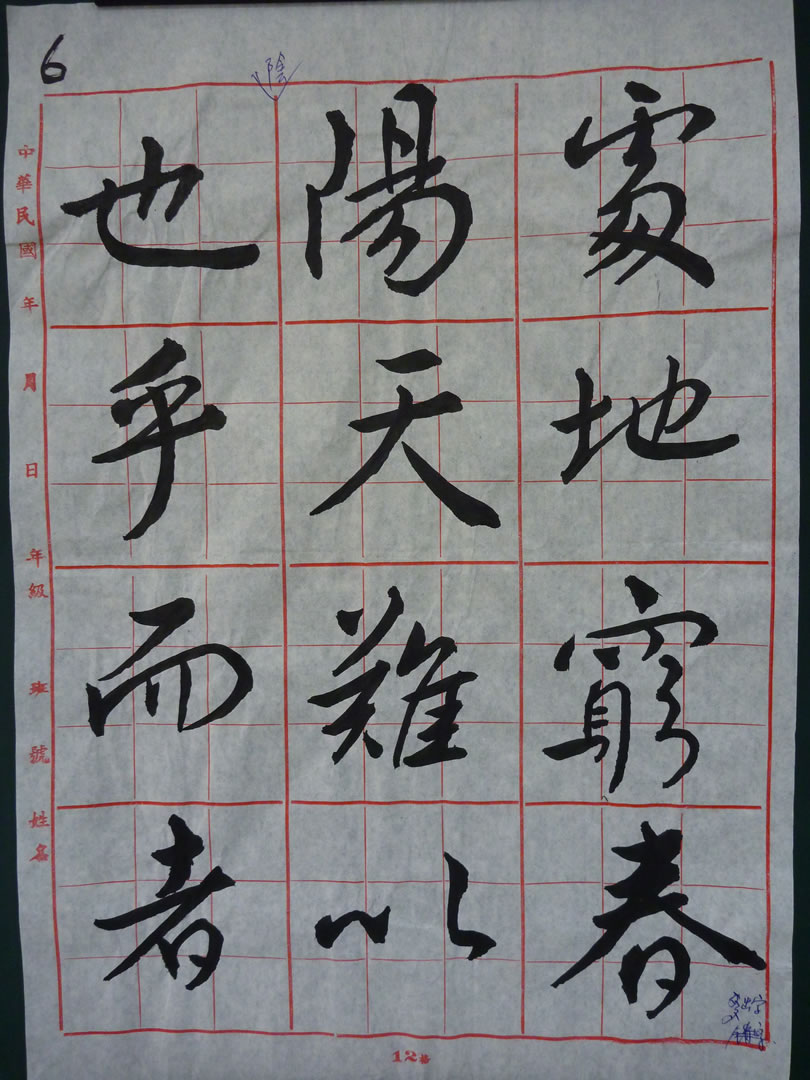 6
陰
也陽處
乎天地
而難窮
者以春
中華民國 年 月 日 年級 班 號 姓名
12格